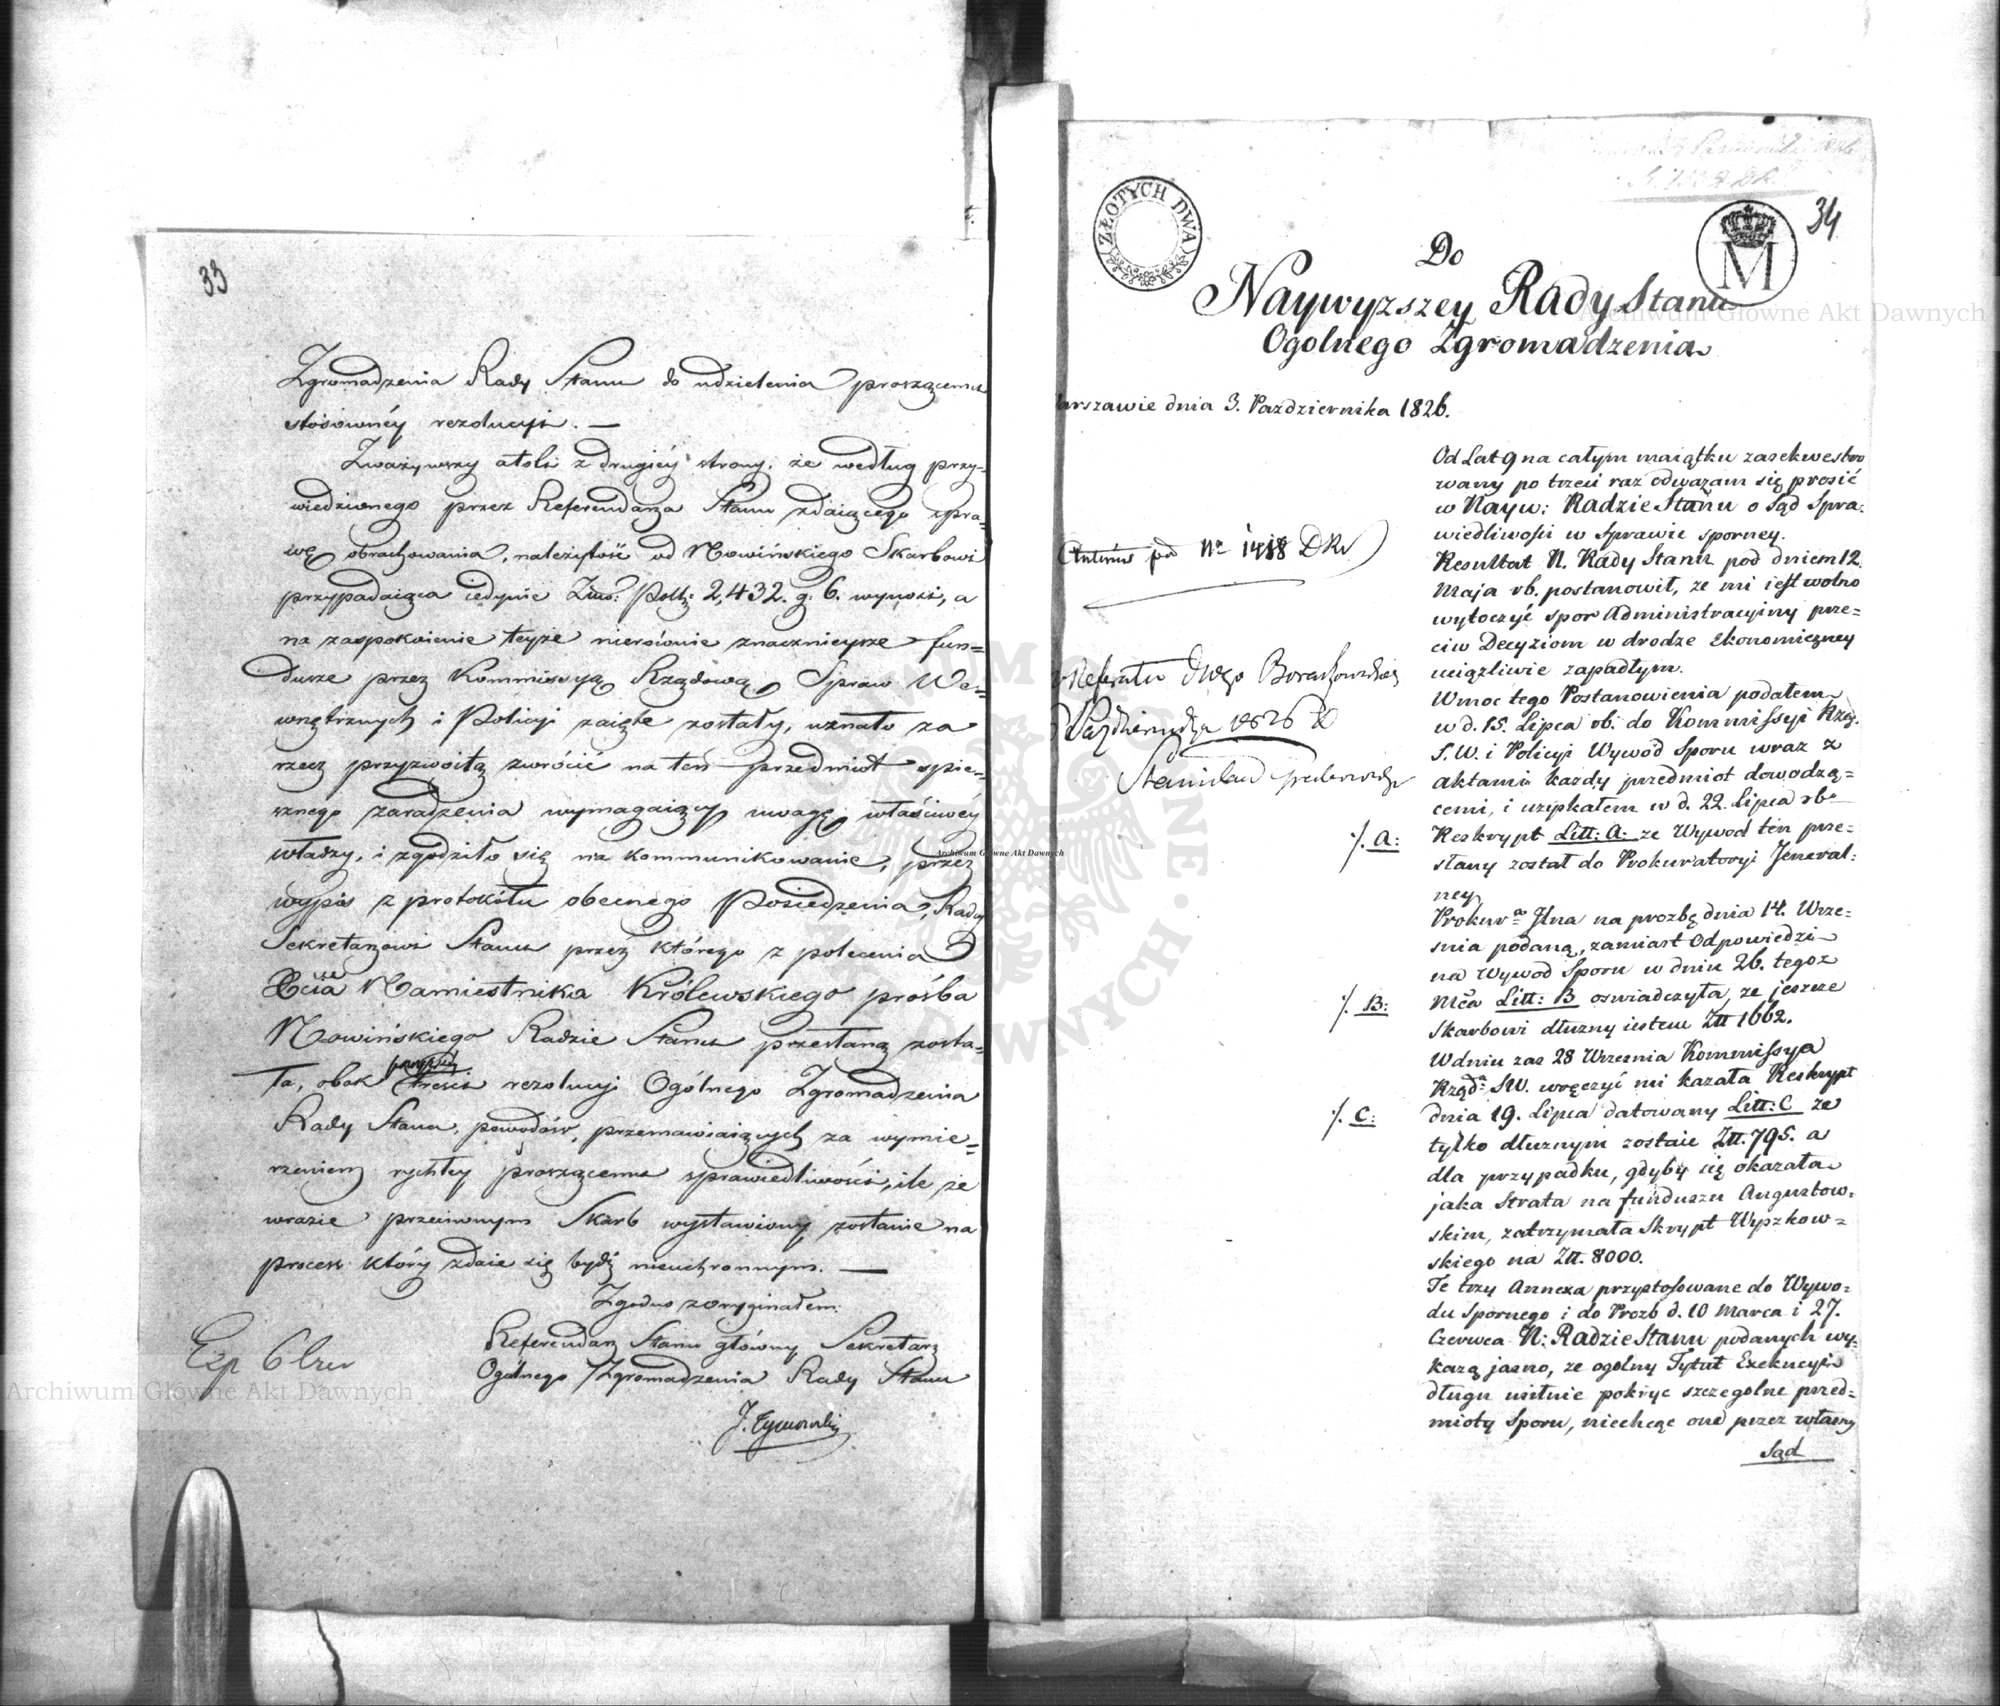 33
Zgromadzenia Rady Stanu do udzielenia proszącemu
stosownéy rezolucyi. —
Zważywszy atoli z drugiéy strony, że według przy-
wiedzionego przez Referendarza Stanu zdaiącego spra-
wę obrachowania, należytość od Nowińskiego Skarbowi
przypadaiąca iedynie Złło: Polb: 2,432. g: 6. wynosi, a
na zaspokoienie teyże nierównie znacznieysze fun=
dusze przez Kommissyą Rządową Spraw We=
wnętrznych i Policyi zaięte zostały, uznało za
rzecz przyzwoitą zwrócić na ten przedmiot spie=
sznego zaradzenia wymagaiący uwagę właściwéy
władzy, i zgodziło się na kommunikowanie, przez
wypis z protokółu obecnego Posiedzenia, Rady
Sekretarzowi Stanu przez którego z polecenia
Xcia Namiestnika Królewskiego prośba
Nowińskiego Radzie Stanu przesłaną zosta=
ła, obok powyższéy treści rezolucyi Ogólnego Zgromadzenia
Rady Stanu, powodów, przemawiaiących za wymie=
rzeniem rychłey proszącemu sprawiedliwości, ile że
wrazie przeciwnym Skarb wystawiony zostanie na
proces który zdaie się bydź nieuchronnym. —
Zgodno z oryginałem:
Referendarz Stanu główny Sekretarz
Ogólnego Zgromadzenia Rady Stanu
J. Tymowski
Exp
ZŁOTYCH DWA
M
34
Do
Naywyzszey Rady Stanu
Ogolnego Zgromadzenia
arszawie dnia 3. Pazdziernika 1826.
Od Lat 9 na całym maiątku zasekwestro
wany po trzeci raz odważam się prosić
w Nayw: Radzie Stanu o Sąd Spra-
wiedliwości w Sprawie sporney.
Resultat N. Rady Stanu pod dniem 12.
Maja rb. postanowił, że mi iest wolno
wytoczyć spor Administracyiny prze=
ciw Decyziom w drodze Ekonomiczney
uciążliwie zapadłym.
W moc tego Postanowienia podałem
w d. 15. Lipca rb. do Kommissyi Rząd.
S. W. i Policyi Wywód Sporu wraz z
aktami każdy przedmiot dowodzą=
cemi, i uzyskałem w d. 22. Lipca rb.
Reskrypt Litt: A: że Wywod ten prze=
słany został do Prokuratoryi Jeneral:
ney.
Prokur.a Jlna na prozbę dnia 14. Wrze=
śnia podaną, zamiast Odpowiedzi
na Wywód Sporu w dniu 26. tegoz
Mca Litt: B oswiadczyła, ze jeszcze
Skarbowi dłuzny iestem Złł 1662.
W dniu zas 28 Wrzesnia Kommissya
Rząd.a SW. wręczyć mi kazała Reskrypt
dnia 19. Lipca datowany Litt: C ze
tylko dłuznym zostaie Złł. 795. a
dla przypadku, gdyby się okazała
jaka Strata na funduszu Augustow-
skim, zatrzymała Skrypt Wyszkow=
skiego na Złł. 8000.
Te trzy Annexa przystosowane do Wywo-
du Spornego i do Prozb d. 10 Marca i 27.
Czerwca N: Radzie Stanu podanych wy-
każą jasno, ze ogolny Tytuł Exekucyi
długu usiłuie pokryc szczegolne przed=
mioty Sporu, niechcąc one przez własny
Sąd
pod No 1418 DRS
Referatu
Pazdziernika 1826
Stanisław
./. A:
./. B:
./. C:
ARCHIWUM GŁÓWNE AKT DAWNYCH
Archiwum Główne Akt Dawnych
Archiwum Główne Akt Dawnych
Archiwum Główne Akt Dawnych